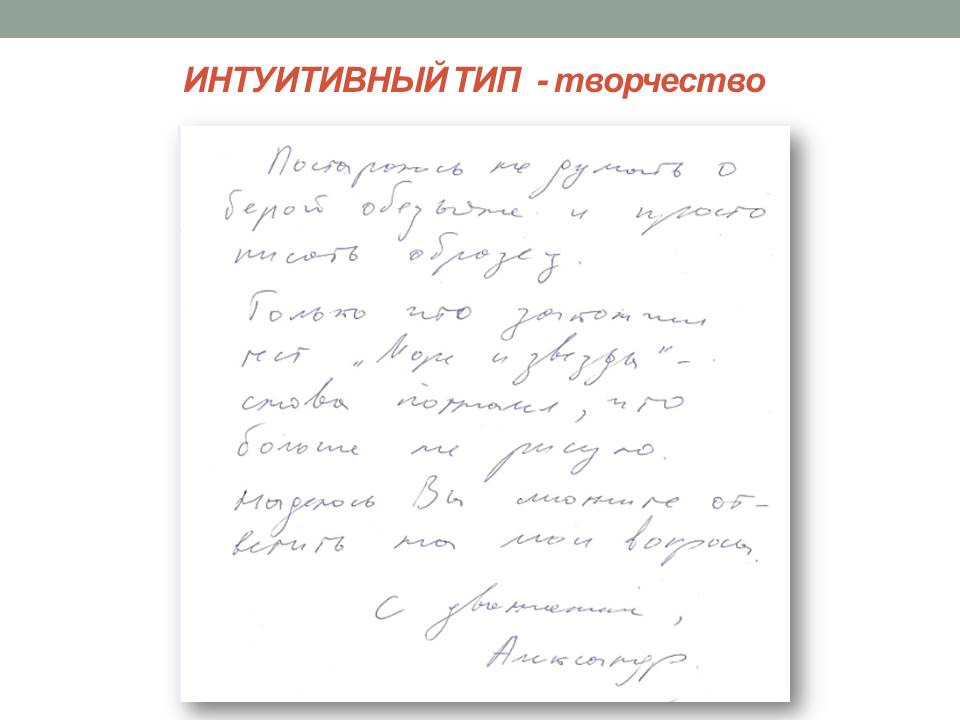 ИНТУИТИВНЫЙ ТИП - творчество
Постараюсь не думать о
белой обезьяне и просто
писать образец.
Только что закончил
тест „Море и звезды“ –
снова понял, что
больше не рисую.
Надеюсь Вы сможите от-
ветить на мои вопросы.
С уважением,
Александр.